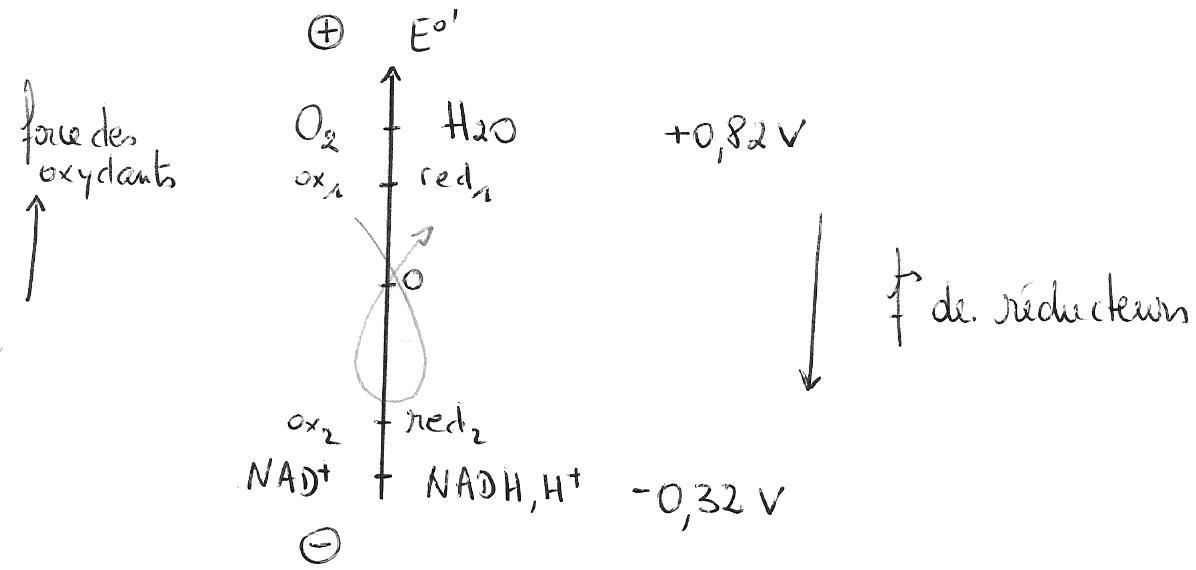 ⊕ E°'
force des
oxydants
O₂ H2O +0,82 V
ox₁ red₁
0
f de. réducteurs
ox₂ red₂
NAD⁺ NADH, H⁺ -0,32 V
⊖